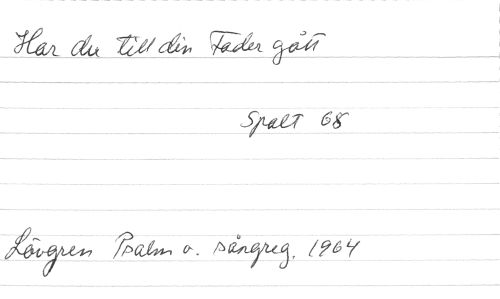 Har du till din Fader gått
Spalt 68
Lövgren Psalm o. sångreg. 1964